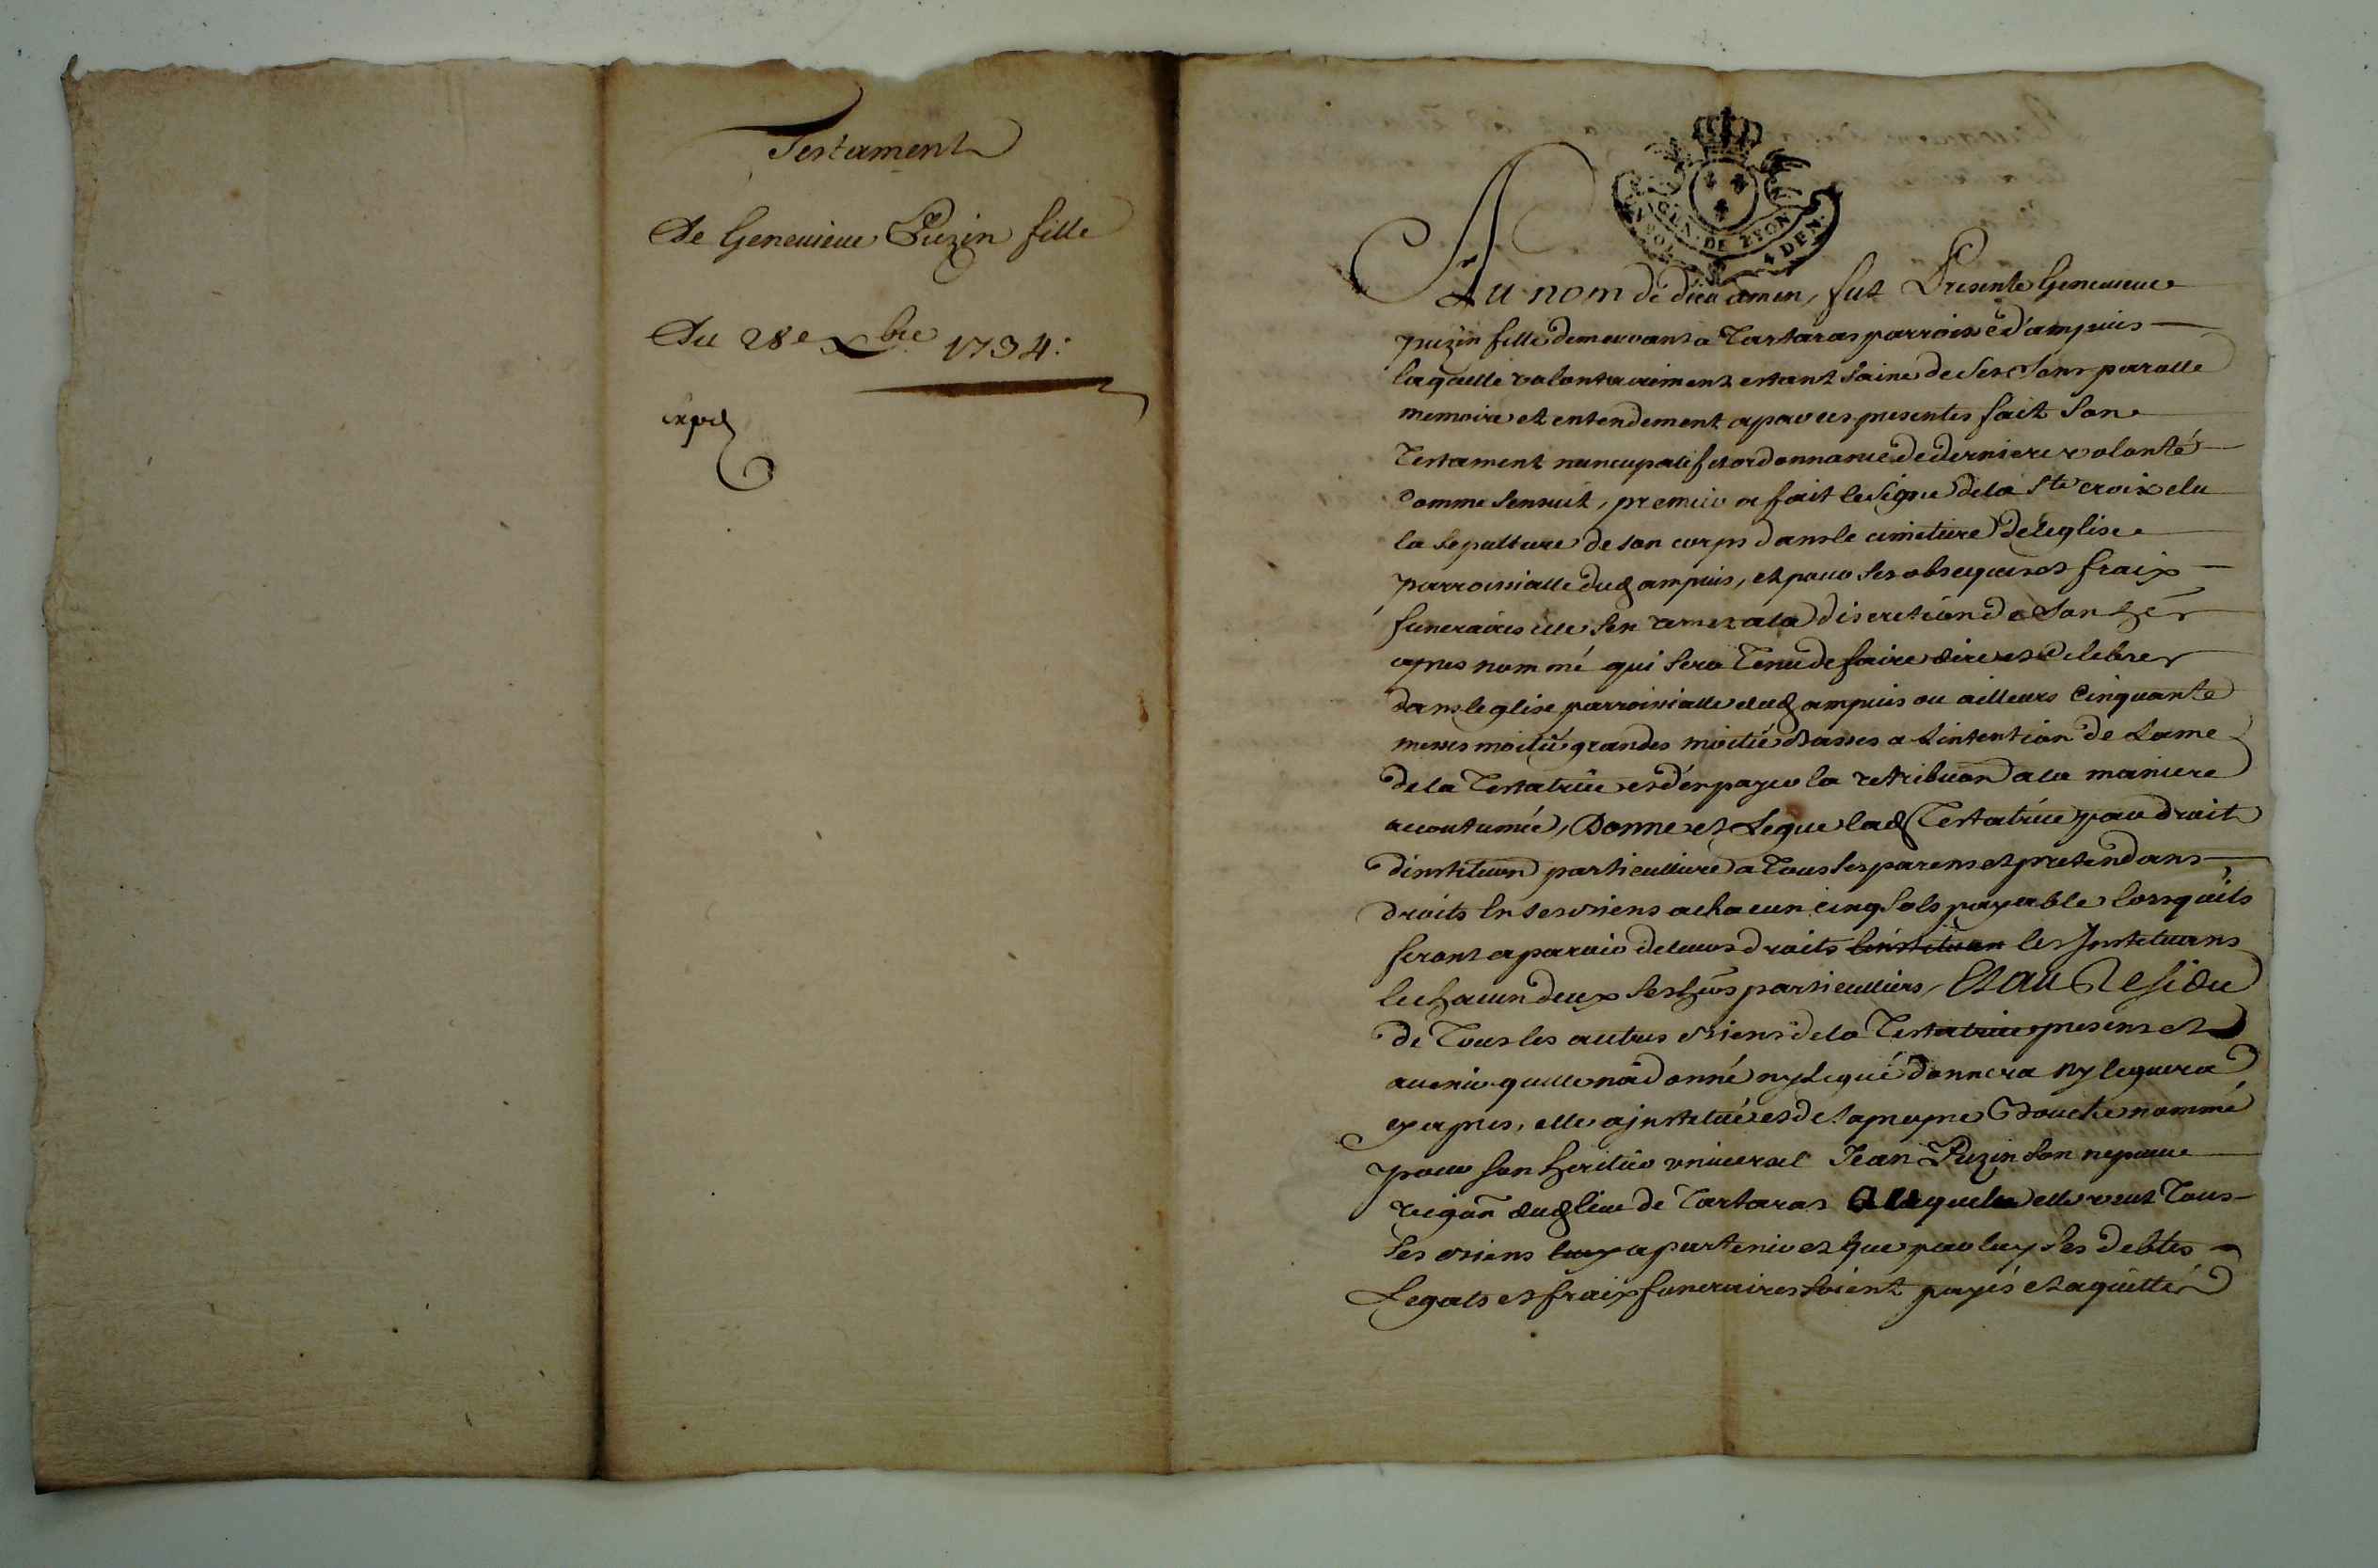 Testament
de Geneuieue Puzin fille
du 28e xbre 1734:
expd
GEN. DE LYON
SOL 4 DEN.
Au nom de dieu amen, fut Presente Geneuieue
puzin fille demeurant a Tartaras parroisse d'ampuis
laquelle volontairement estant saine de ses sens parolle
memoire et entendement a par ces presentes fait son
Testament nuncupatif et ordonnance de derniere volonté
Comme sensuit, premier a fait le signe de la Ste croix elu
la sepulture de son corps dans le cimetiere de leglise
parroissialle dud ampuis, et pour ses obseques et fraix
funeraires elle sen remet a la discretion de son her
apres nommé qui sera Tenu de faire dire et celebrer
dans leglise parroissialle dud ampuis ou ailleurs Cinquante
messes moitié grandes moitié basses a Lintention de Lame
de la Testatrice et d'en payer la retribuon a la maniere
accoutumée, Donne et Legue lad Testatrice par droit
dinstituon particulliere a Tous ses parens et pretendans
droits en ses biens a chacun cinq sols payable lorsquils
feront aparoir de leurs droits linstituan les Instituans
le chacun deux ses hers particulliers, Et au Residu
de Tous les autres biens de la Testatrice presens et
auenir quelle na donné ny Legué donnera ny leguera
cy apres, elle a institué et de sa propre Bouche nommé
pour son heritier vniuersel Jean Puzin son nepueu
vigon dud lieu de Tartaras auquel elle veut Tous
ses biens luy apartenir et que par luy ses debtes
Legats et fraix funeraires soient payés et aquittés